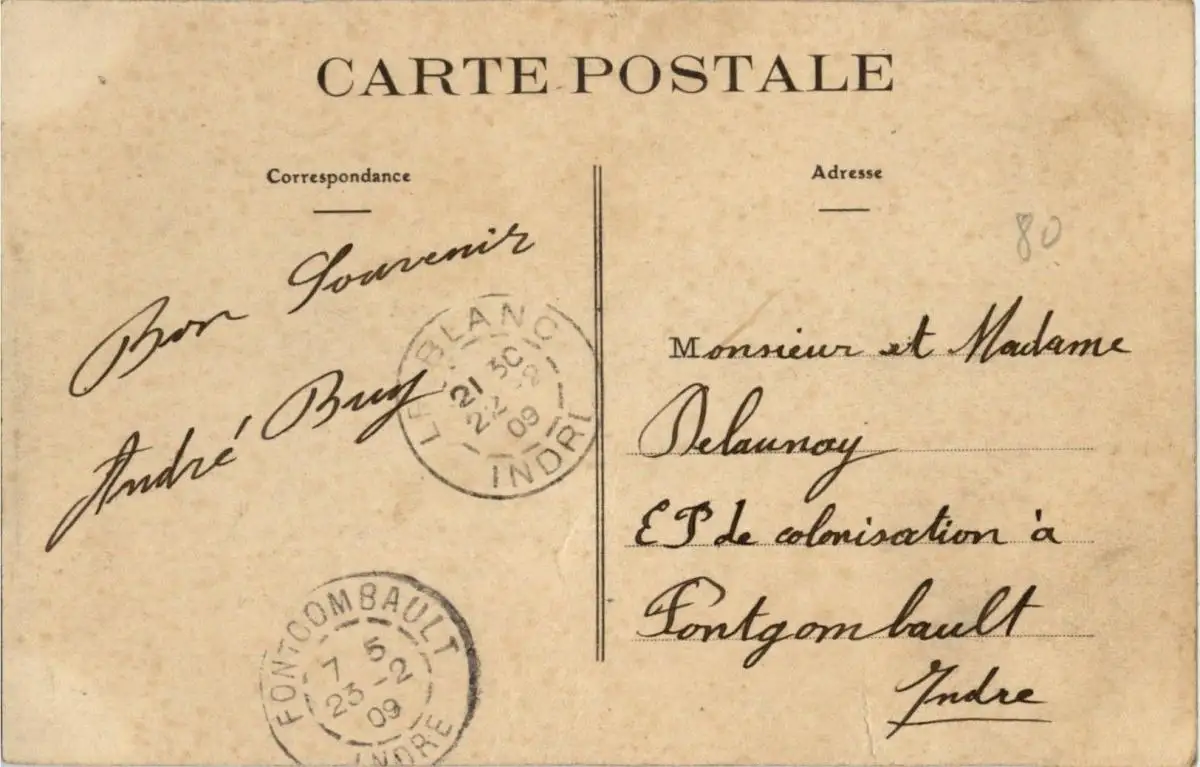 CARTE POSTALE
Correspondance
Bon Souvenir
André Buy
Adresse
80
Monsieur et Madame
Delaunay
EP de colonisation à
Fontgombault
Indre
LE BLANC
21 30
22 -2
09
INDRE
FONTGOMBAULT
7 5
23 -2
09
INDRE